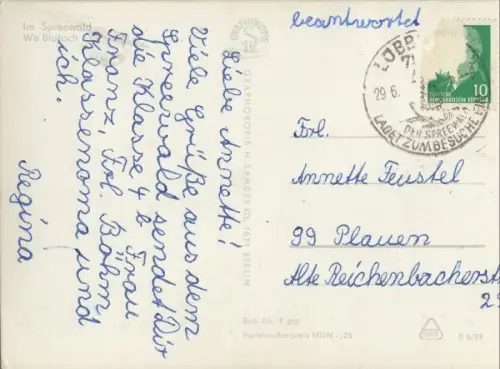 Im Spreewald
beantwortet
Liebe Annette!
Viele Grüße aus dem
Spreewald sendet Dir
die Klasse 4 b Frau
Franz, Frl. Böhm
Klassenoma und
ich.
Regina
GRAPHOKOPIE H. SANDER KG, 1071 BERLIN
LÜBB
29.6.
DER SPREEWALD
LADET ZUM BESUCHE
10
DEUTSCHE
DEMOKRATISCHE REPUBLIK
Frl.
Annette Feustel
99 Plauen
Alte Reichenbacherstr
Verbraucherpreis MDN -,25